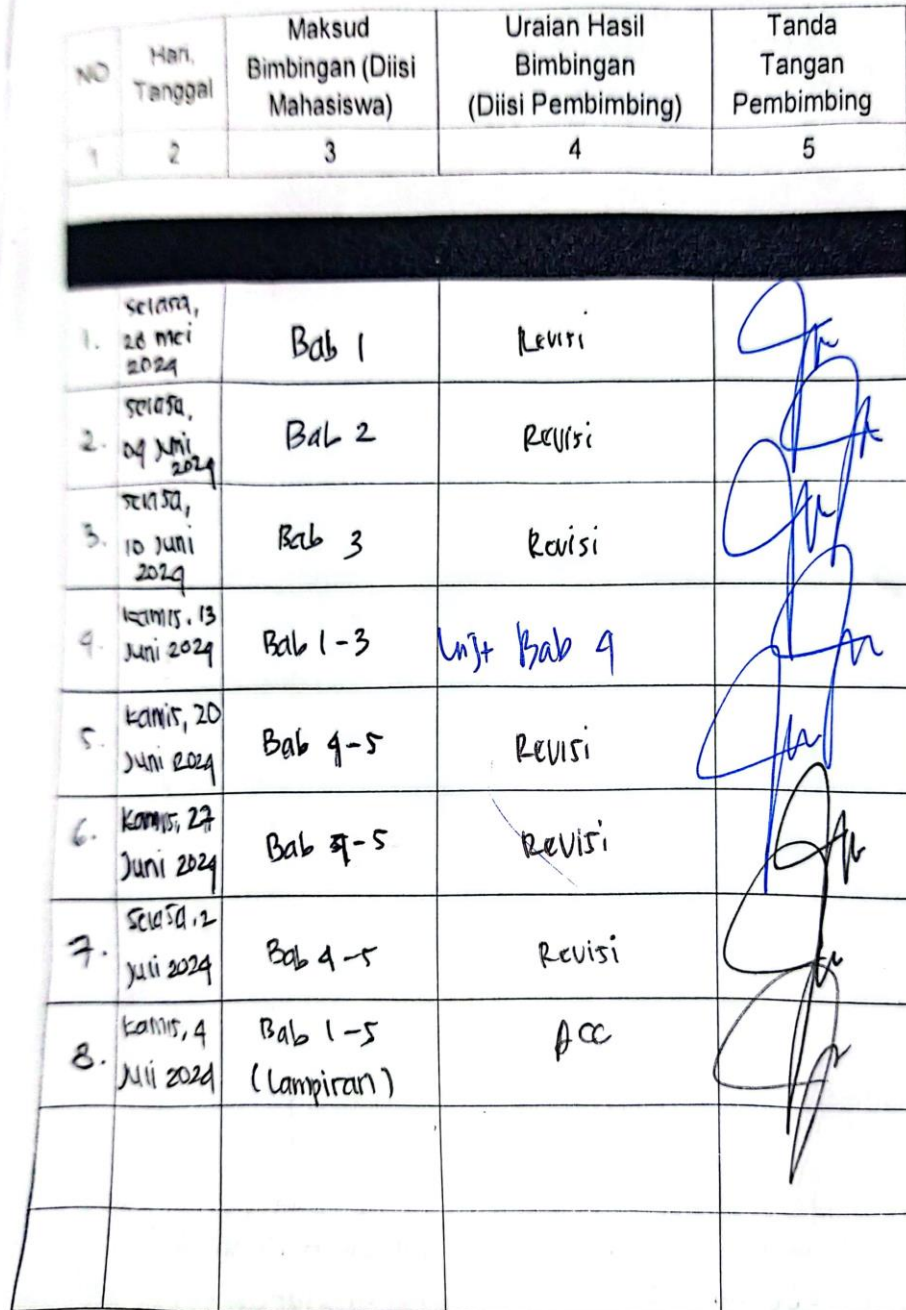 NO
Hari,
Tanggal
Maksud
Bimbingan (Diisi
Mahasiswa)
Uraian Hasil
Bimbingan
(Diisi Pembimbing)
Tanda
Tangan
Pembimbing
1
2
3
4
5
1.
selasa,
28 mei
2024
Bab 1
Revisi
2.
selasa,
04 Juni
2024
Bab 2
Revisi
3.
selasa,
10 Juni
2024
Bab 3
Revisi
4.
kamis, 13
Juni 2024
Bab 1-3
Lnjt Bab 4
5.
kamis, 20
Juni 2024
Bab 4-5
Revisi
6.
Kamis, 27
Juni 2024
Bab 4-5
Revisi
7.
selasa, 2
Juli 2024
Bab 4-5
Revisi
8.
kamis, 4
Juli 2024
Bab 1-5
(Lampiran)
ACC